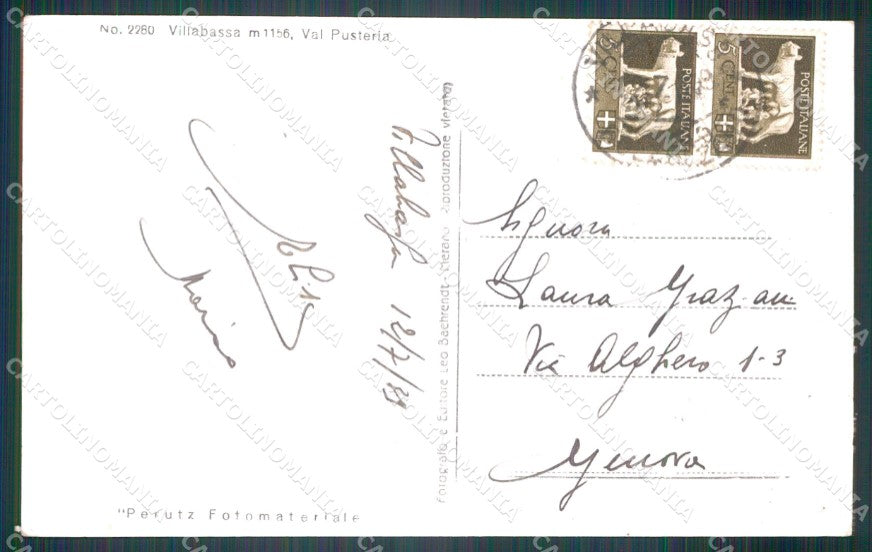 No. 2280 Villabassa m 1156, Val Pusteria
5 CENT
POSTE ITALIANE
5 CENT
POSTE ITALIANE
Villabassa 12/7/39
Marino
Fotografia e Editore Leo Baehrendt - Merano Riproduzione vietata
Signora
Laura Graziani
Via Alghero 1-3
Genova
"Perutz Fotomateriale
CARTOLINOMANIA